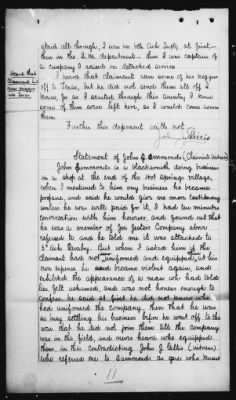 stood all through, I was in 6th Ark. Infty. at first,—
then in the Q.M. department — then I was captain of
a company I raised on detached service.
I heard that claimant ran some of his negros
off to Texas, but he did not send them all off I
know, for as I scouted through this country I knew
some of them were left here, as I would come across
them
Further this deponent saith not —
John J. Ellis
Heard that
Claimant ran
some negros
into Texas.
Statement of John J. Simmonds (Claimants witness)
John Simmonds is a blacksmith doing business
in a shop at the end of the Hot Springs village,
when I mentioned to him my business he became
profane, and said he would give no more testimony
unless he was well paid for it, I had ten minutes
conversation with him however, and found out that
he was a member of Jos Jester's Company above
referred to and he told me it was attached to
3rd Ark. Cavalry. But when I asked him if the
claimant had not uniformed and equipped, at his
own expense he became violent again, and
exhibited the appearance of a man who had told
lies, felt ashamed, and was not honest enough to
confess, he said at first he did not know who
had uniformed the Company, then that he was
so busy settling his business before he went off to the
war that he did not join them till the company
was in the field, and never heard who equipped
them, in this contradicting John J. Ellis (witness)
who referred me to Simmonds as one who knew
11